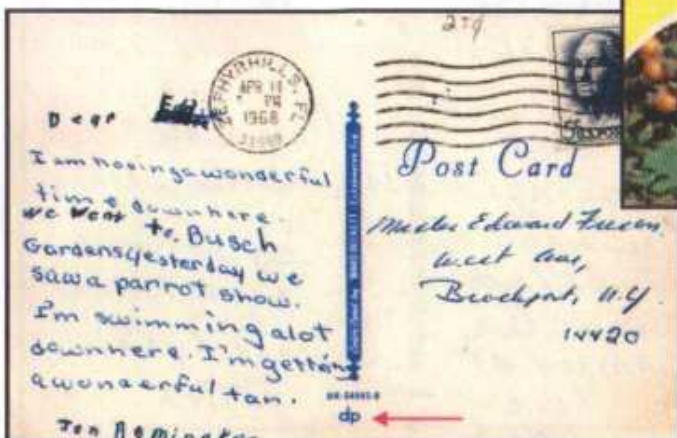 27¢
ZEPHYRHILLS, FL
APR 11
PM
1968
Dear Eddie
I am having a wonderful
time downhere.
we went to Busch
Gardens yesterday we
saw a parrot show.
I'm swimming alot
downhere. I'm getting
a wonderful tan.
Post Card
Edward
West Ave,
Brockport, N.Y.
14420
dp